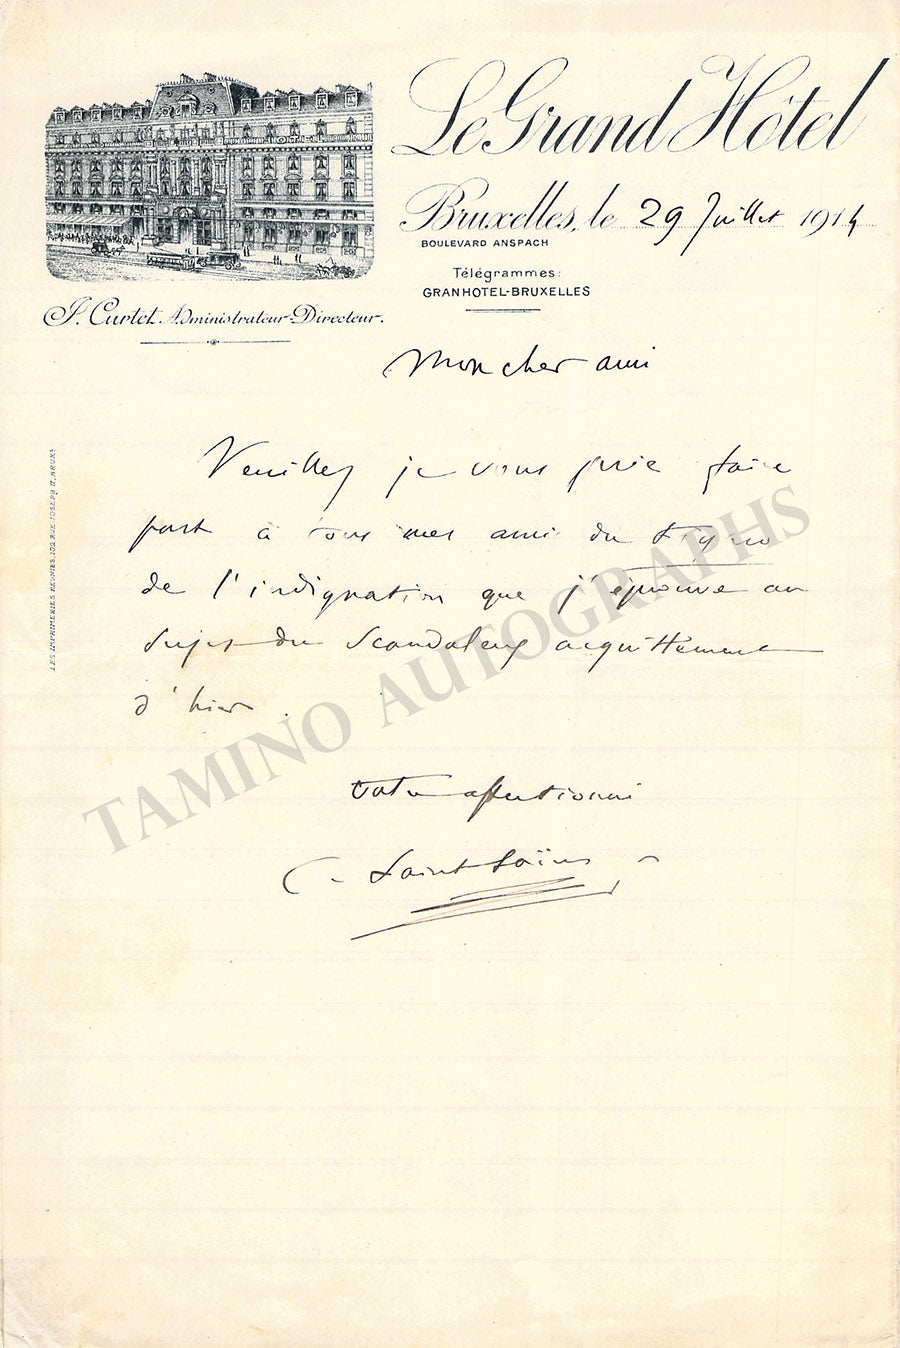 Le Grand Hôtel
Bruxelles, le 29 Juillet 1914
BOULEVARD ANSPACH
Télégrammes:
GRANHOTEL-BRUXELLES
J. Curtet Administrateur-Directeur.
Mon cher ami
Veuillez je vous prie faire
part à tous mes amis du Figaro
de l'indignation que j'éprouve au
sujet du scandaleux acquittement
d'hier.
Votre affectionné
C. Saint-Saëns
LES IMPRIMERIES RÉUNIES, 100, RUE JOSEPH II, BRUX.
TAMINO AUTOGRAPHS